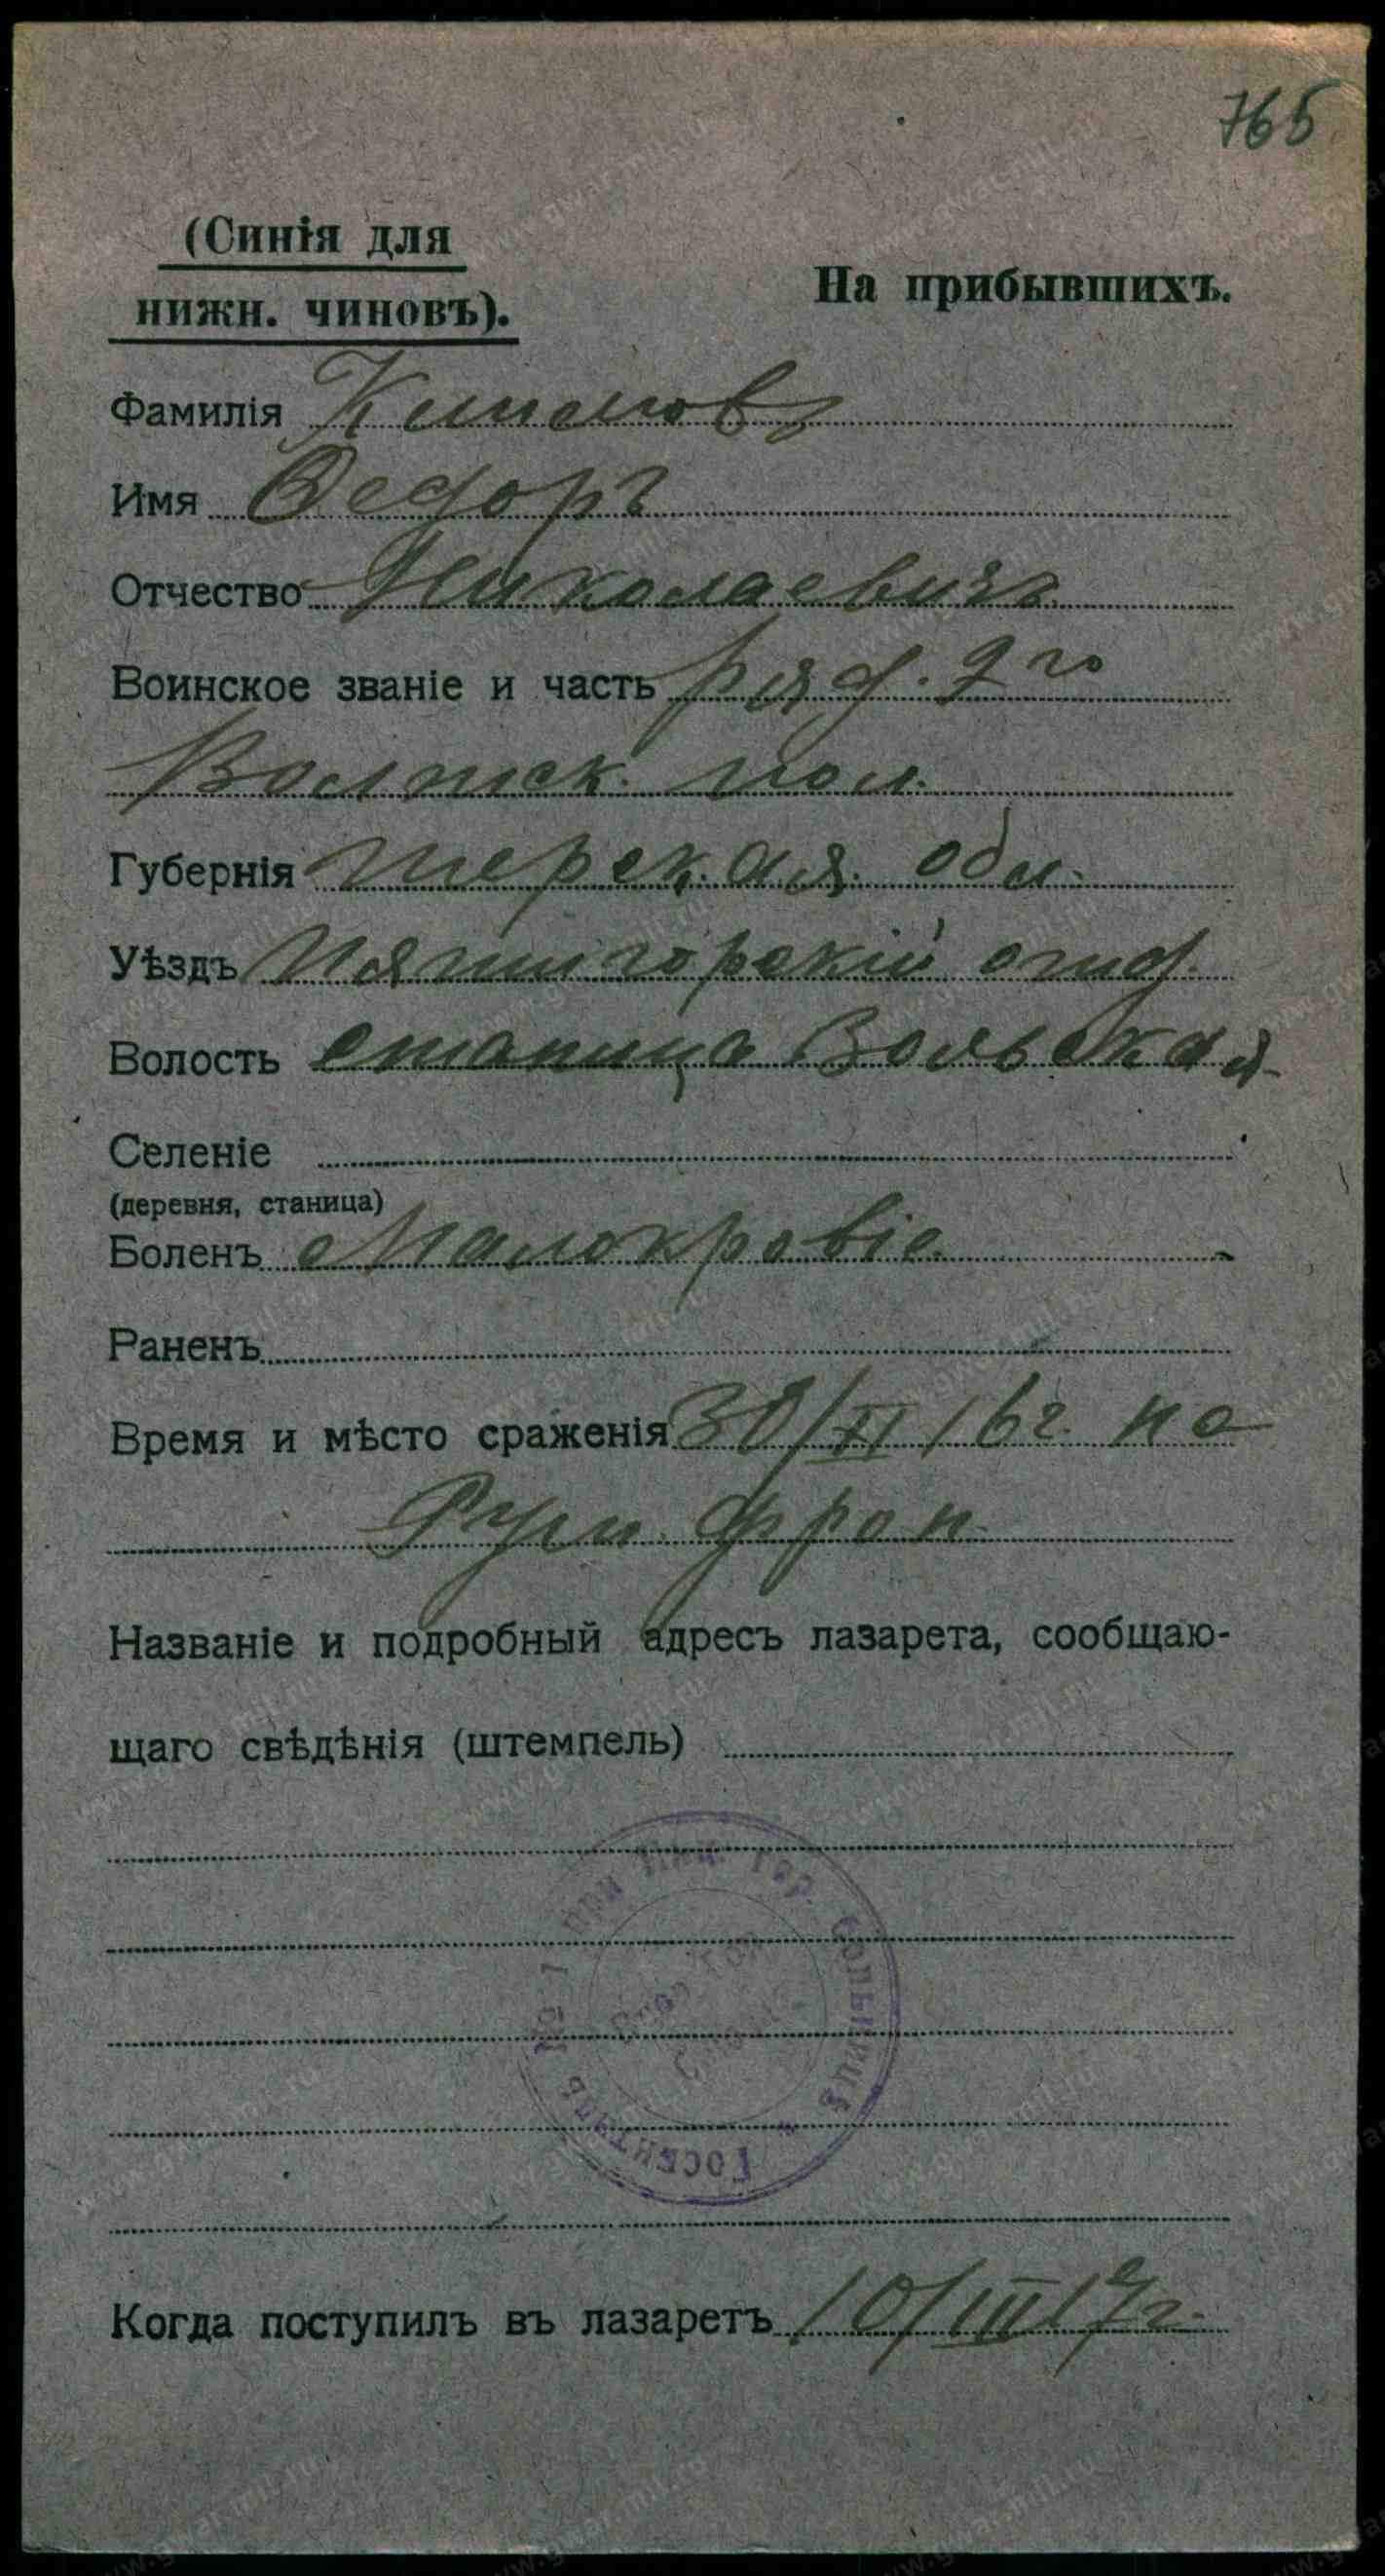 765
(Синія для
нижн. чиновъ).
На прибывшихъ.
Фамилія Климовъ
Имя Федоръ
Отчество Николаевичъ
Воинское званіе и часть ряд. 2го
Волжск. пол.
Губернія терск.ая. обл.
Уѣздъ Пятигорскій отд
Волость станица
Селеніе
(деревня, станица)
Боленъ Малокровіе
Раненъ
Время и мѣсто сраженія 30/XI 16г. на
Рум. фрон.
Названіе и подробный адресъ лазарета, сообщаю-
щаго свѣдѣнія (штемпель)
при гор. больницѣ Госпиталь
Когда поступилъ въ лазаретъ 10/III 17г.